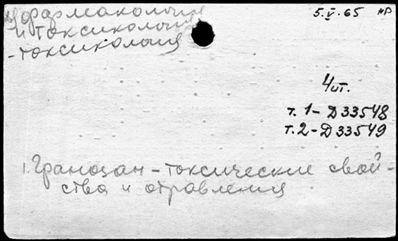 Фармакология
и токсикология
- токсикология
5.V.65 НР
4 шт.
т. 1 - Д 33548
т. 2 - Д 33549
1. Гранозан - токсические свой-
ства и отравления